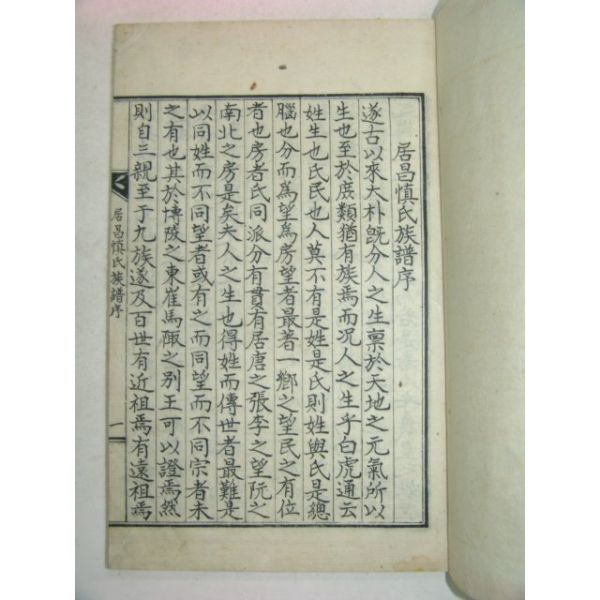 居昌慎氏族譜序
邃古以來大朴旣分人之生稟於天地之元氣所以
生也至於庶類猶有族焉而况人之生乎白虎通云
姓生也氏民也人莫不有是姓是氏則姓與氏是總
腦也分而爲望爲房望者最著一鄕之望民之有位
者也房者氏同派分有貫有居唐之張李之望阮之
南北之房是矣夫人之生也得姓而傳世者最難是
以同姓而不同望者或有之而同望而不同宗者未
之有也其於博陵之東崔馬陬之别王可以證焉然
則自三親至于九族遂及百世有近祖焉有遠祖焉
居昌慎氏族譜序
一